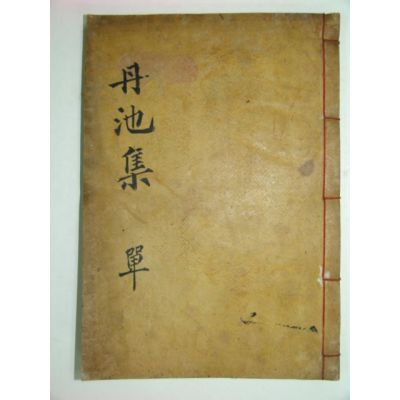 丹池集 單